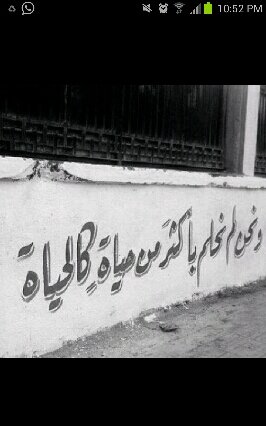 10:52 PM
ونحن لم نحلم بأكثر من حياةٍ كالحياة